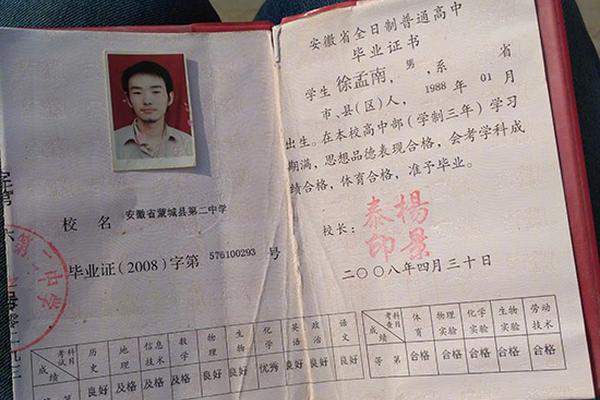 校名 安徽省蒙城县第二中学
毕业证(2008)字第 576100293 号
考试科目 历史 地理 信息技术 数学 物理 生物 化学 英语 政治 语文
成绩 良好 及格 及格 及格 良好 良好 优秀 良好 良好 良好
第二中学
安徽省全日制普通高中
毕业证书
学生 徐孟南，男，系 省
市、县(区)人，1988 年 01 月
出生。在本校高中部(学制三年)学习
期满，思想品德表现合格，会考学科成
绩合格，体育合格，准予毕业。
校长：
楊景泰印
二〇〇八年四月三十日
考查科目 体育 物理实验 化学实验 生物实验 劳动技术
等第 合格 合格 合格 合格 合格